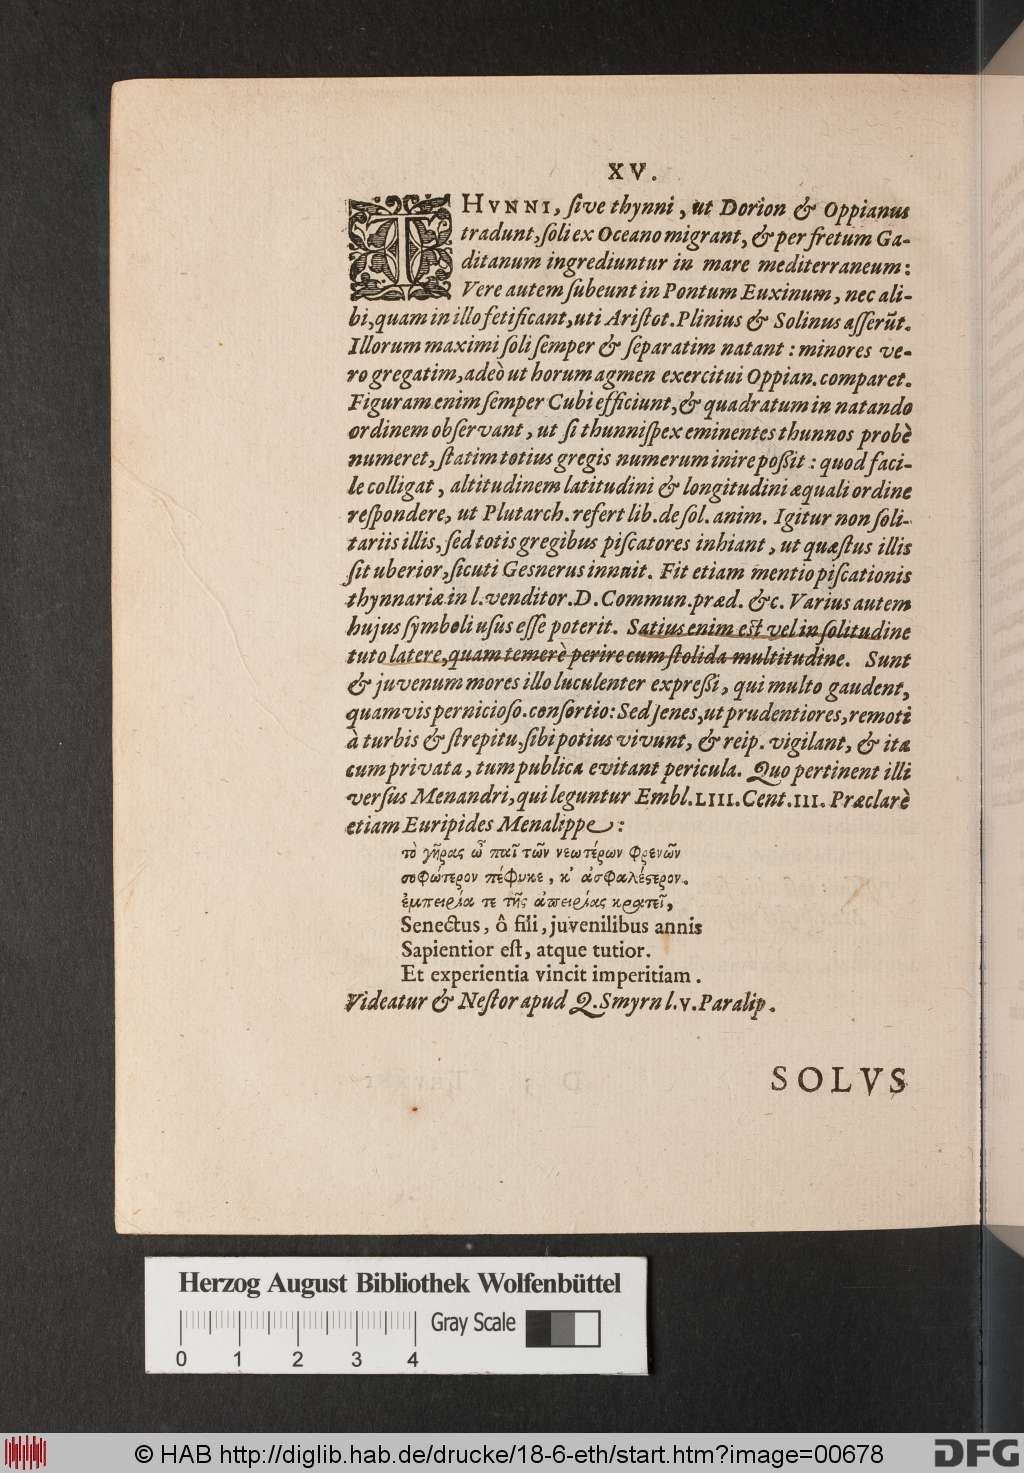 XV.
THVNNI, ſive thynni, ut Dorion & Oppianus
tradunt, ſoli ex Oceano migrant, & per fretum Ga-
ditanum ingrediuntur in mare mediterraneum:
Vere autem ſubeunt in Pontum Euxinum, nec ali-
bi, quam in illo fetificant, uti Ariſtot. Plinius & Solinus aſſerũt.
Illorum maximi ſoli ſemper & ſeparatim natant: minores ve-
ro gregatim, adeò ut horum agmen exercitui Oppian. comparet.
Figuram enim ſemper Cubi efficiunt, & quadratum in natando
ordinem obſervant, ut ſi thunniſpex eminentes thunnos probè
numeret, ſtatim totius gregis numerum inire poßit: quod faci-
le colligat, altitudinem latitudini & longitudini æquali ordine
reſpondere, ut Plutarch. refert lib. de ſol. anim. Igitur non ſoli-
tariis illis, ſed totis gregibus piſcatores inhiant, ut quæſtus illis
ſit uberior, ſicuti Geſnerus innuit. Fit etiam mentio piſcationis
thynnariæ in l. venditor. D. Commun. præd. &c. Varius autem
hujus ſymboli uſus eſſe poterit. Satius enim eſt vel in ſolitudine
tuto latere, quam temerè perire cum ſtolida multitudine. Sunt
& juvenum mores illo luculenter expreßi, qui multo gaudent,
quamvis pernicioſo. conſortio: Sed ſenes, ut prudentiores, remoti
à turbis & ſtrepitu, ſibi potius vivunt, & reip. vigilant, & ita
cum privata, tum publica evitant pericula. Quo pertinent illi
verſus Menandri, qui leguntur Embl. LIII. Cent. III. Præclarè
etiam Euripides Menalippe:
τὸ γῆρας ὦ παῖ τῶν νεωτέρων φρενῶν
σοφώτερον πέφυκε, κ' ἀσφαλέϛερον.
ἐμπειρία τε τῆς ἀπειρίας κρατεῖ,
Senectus, ô fili, juvenilibus annis
Sapientior eſt, atque tutior.
Et experientia vincit imperitiam.
Videatur & Neſtor apud Q. Smyrn l. v. Paralip.
SOLVS
Herzog August Bibliothek Wolfenbüttel
Gray Scale
0 1 2 3 4
© HAB http://diglib.hab.de/drucke/18-6-eth/start.htm?image=00678
DFG